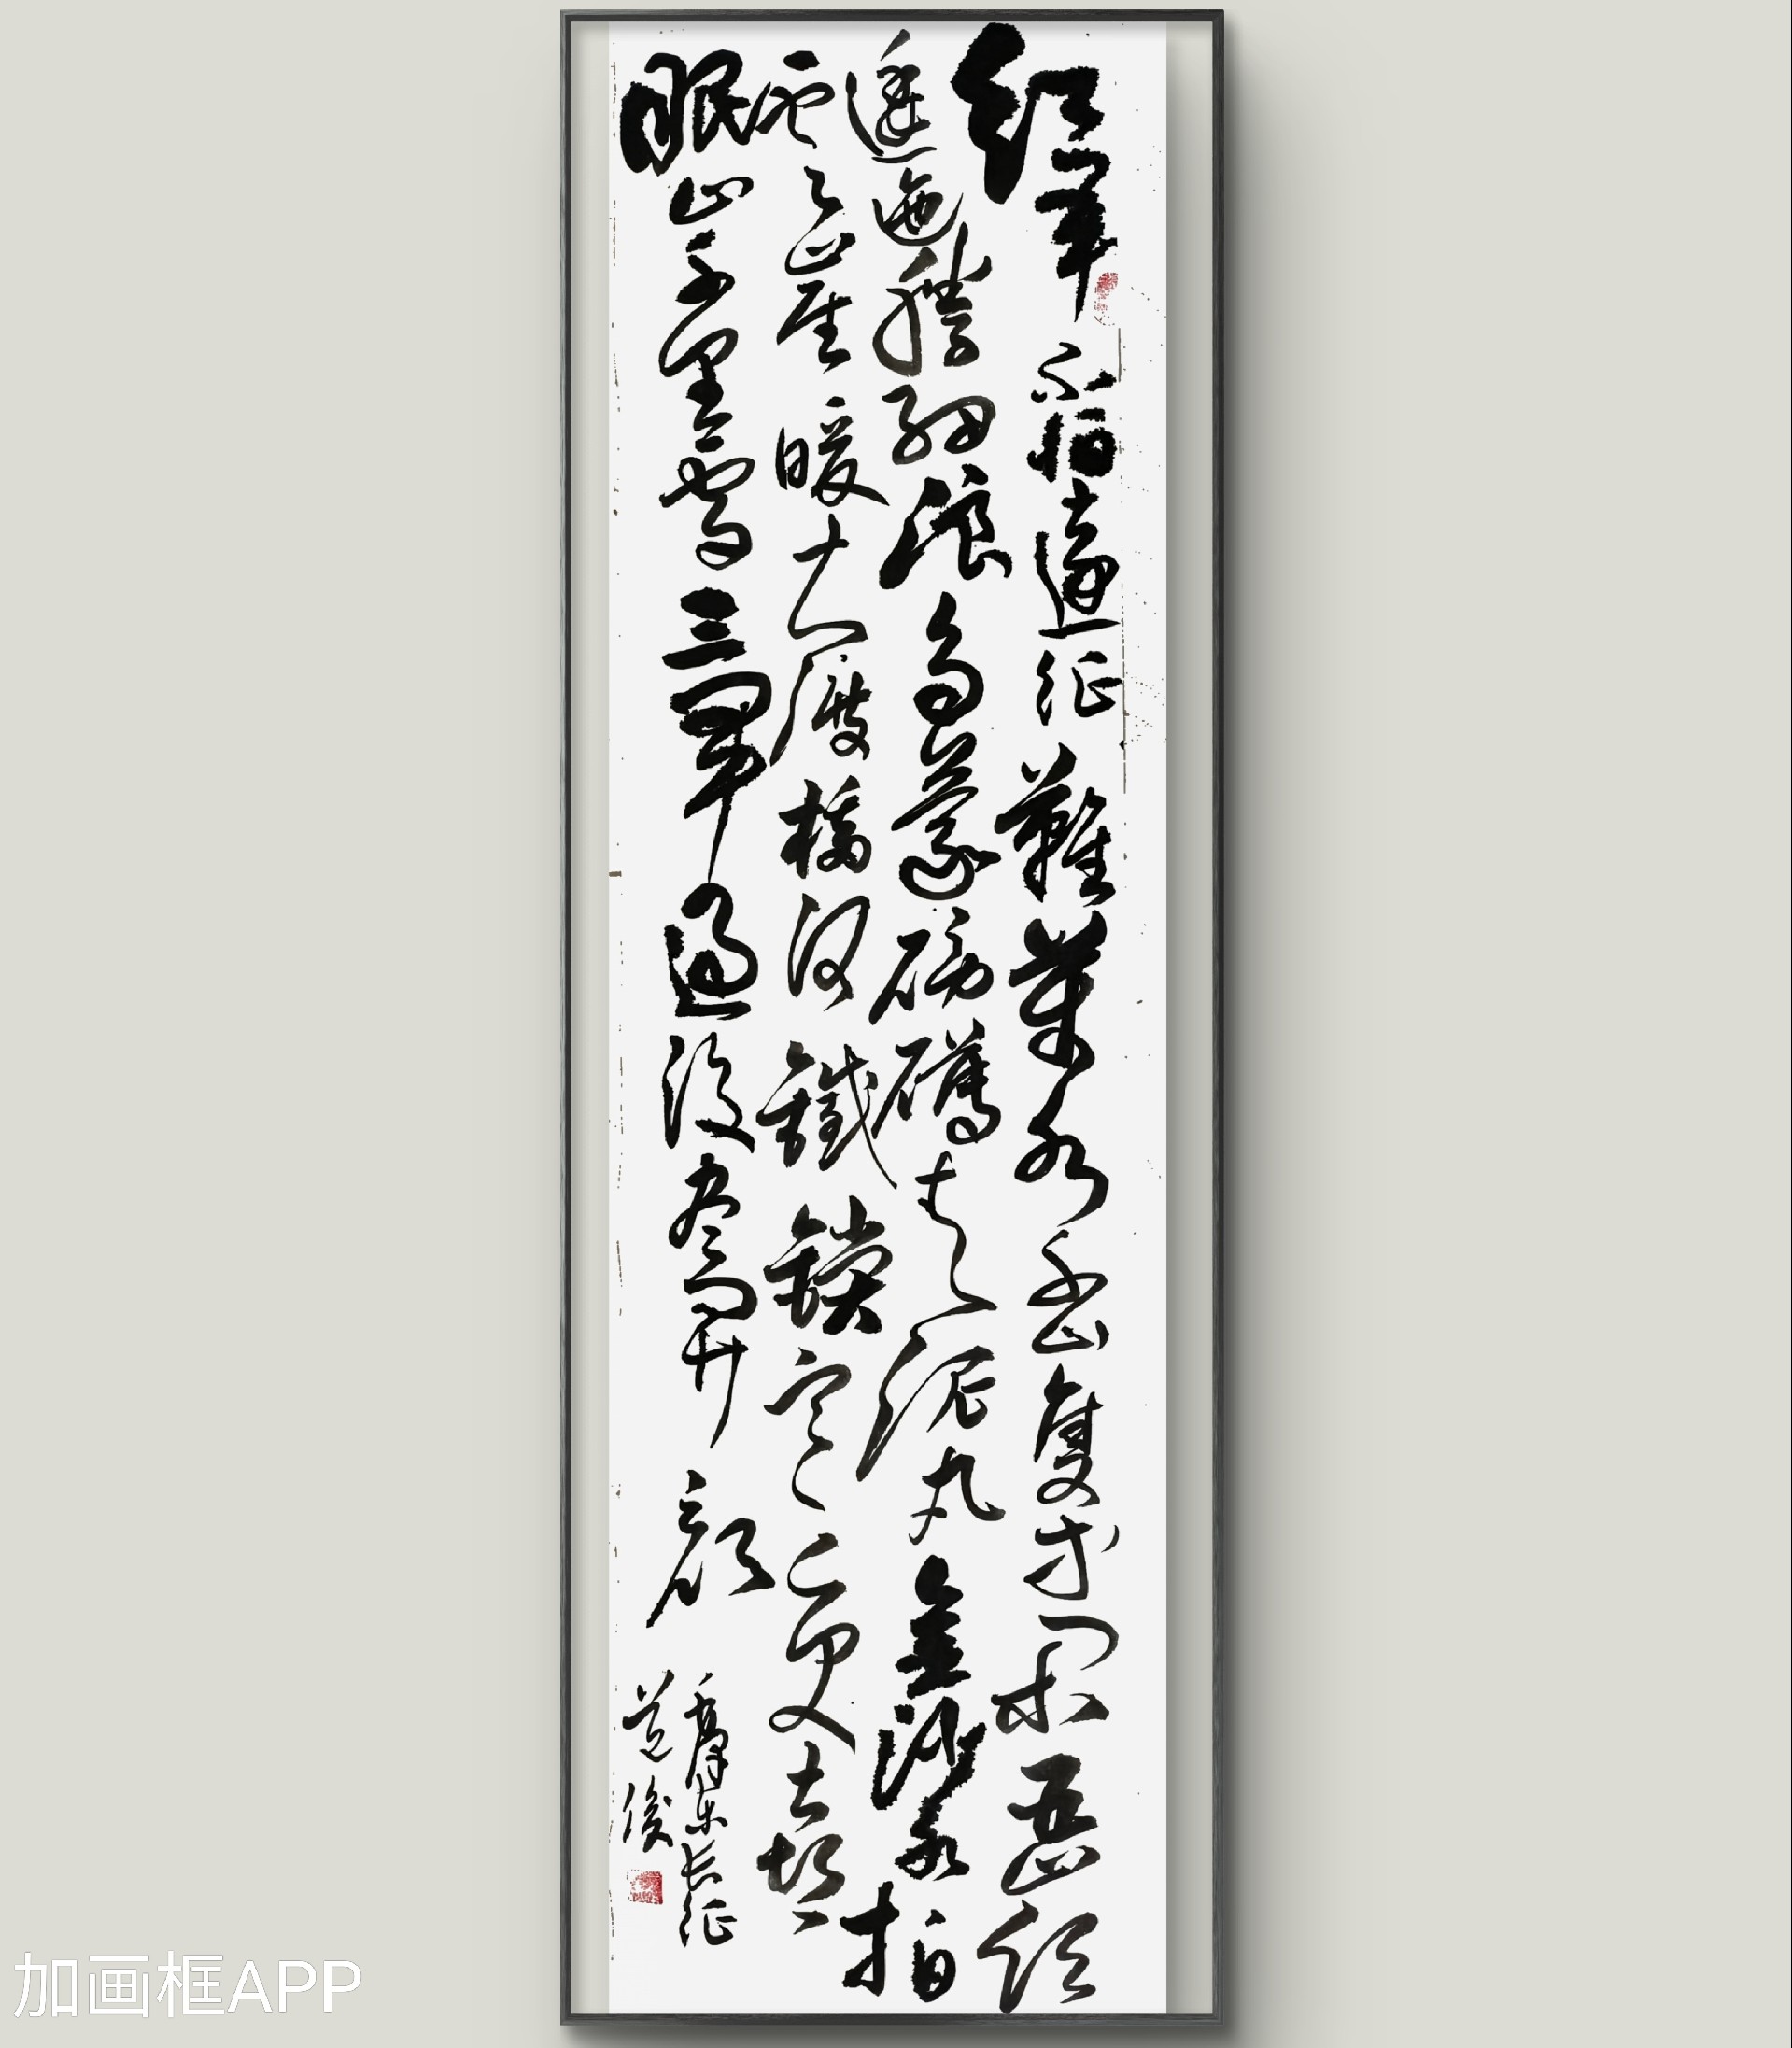 紅軍不怕遠征難萬水千山隻等閒五嶺
逶迤騰細浪烏蒙磅礴走泥丸金沙水拍
雲崖暖大渡橋鐵鎖寒更喜
岷山千里雪三軍過後尽開顏
毛澤东长征
道俊
加画框APP